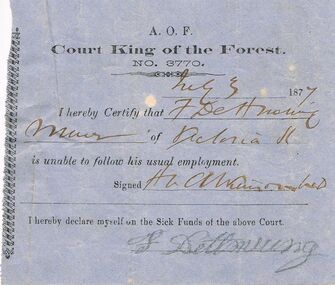 A. O. F.
Court King of the Forest.
NO. 3770.
July 3 1877
I hereby Certify that F Dettmering
Miner of Victoria St
is unable to follow his usual employment.
Signed
I hereby declare myself on the Sick Funds of the above Court.
F Dettmering